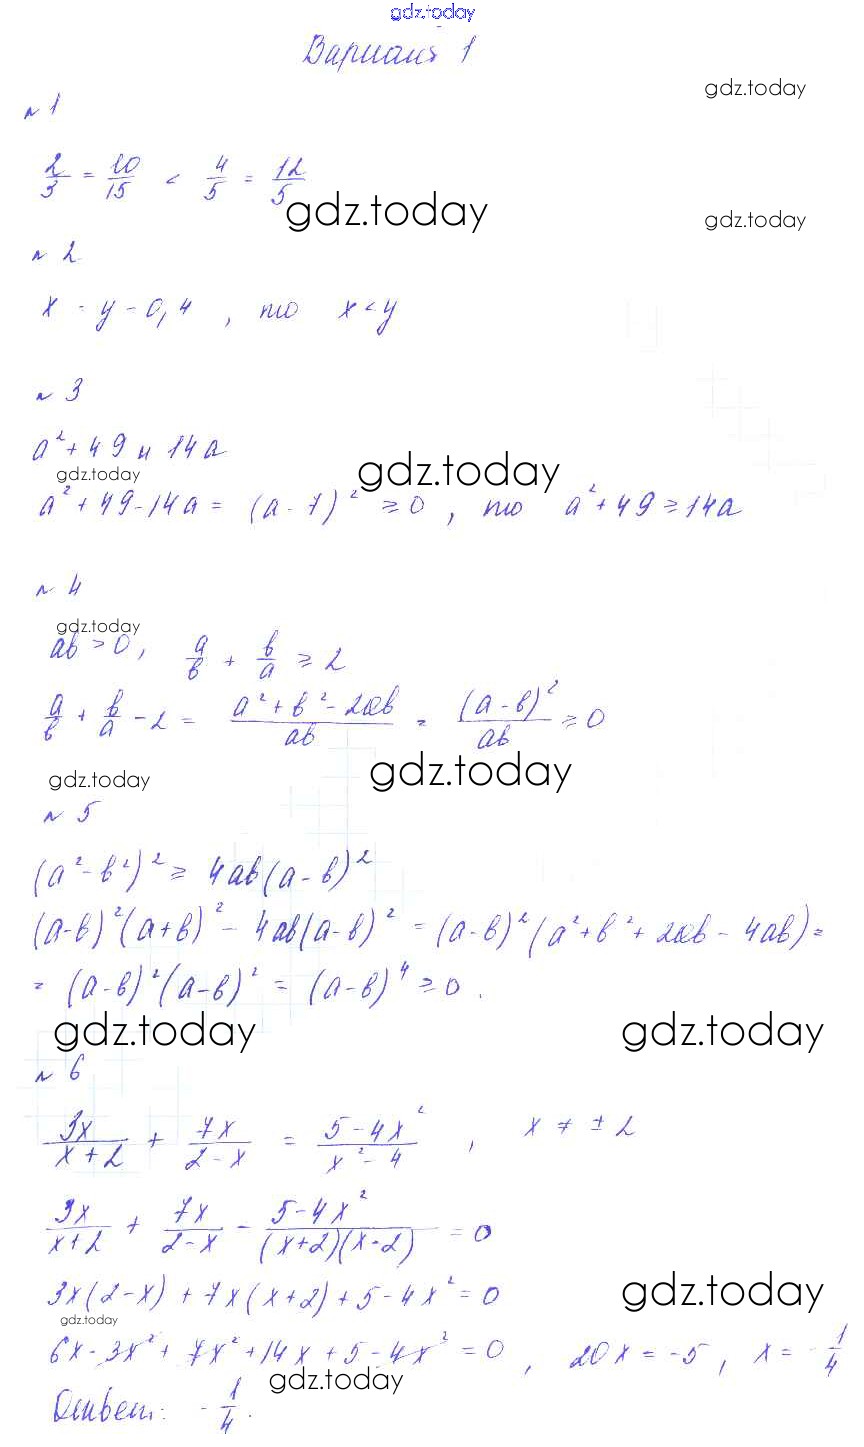 gdz.today
Вариант 1
gdz.today
№ 1
2/3 = 10/15 < 4/5 = 12/5
gdz.today
gdz.today
№ 2
x - y = -0,4, то x < y
№ 3
a² + 49 и 14a
gdz.today
gdz.today
a² + 49 - 14a = (a - 7)² ≥ 0, то a² + 49 ≥ 14a
№ 4
gdz.today
ab > 0, a/b + b/a ≥ 2
a/b + b/a - 2 = (a² + b² - 2ab)/ab = (a - b)²/ab ≥ 0
gdz.today
gdz.today
№ 5
(a² - b²)² ≥ 4ab(a - b)²
(a-b)²(a+b)² - 4ab(a-b)² = (a-b)²(a² + b² + 2ab - 4ab) =
= (a-b)²(a-b)² = (a-b)⁴ ≥ 0.
gdz.today
gdz.today
№ 6
3x/(x+2) + 7x/(2-x) = (5-4x²)/(x²-4), x ≠ ±2
3x/(x+2) + 7x/(2-x) - (5-4x²)/((x+2)(x-2)) = 0
3x(2-x) + 7x(x+2) + 5 - 4x² = 0
gdz.today
gdz.today
6x - 3x² + 7x² + 14x + 5 - 4x² = 0, 20x = -5, x = -1/4
gdz.today
Ответ: -1/4.